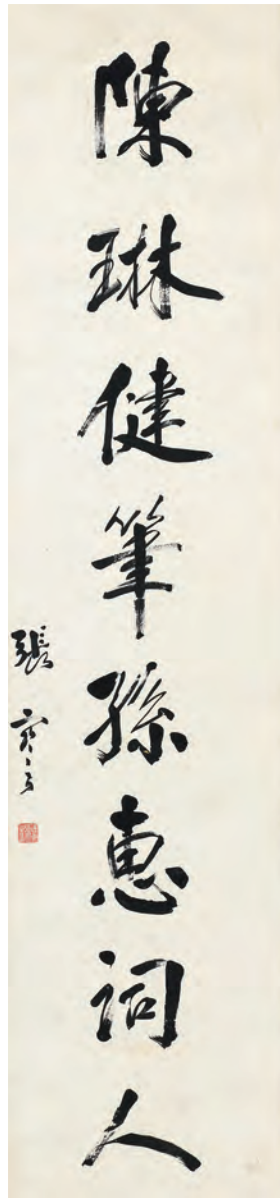 陳琳健筆孫惠詞人
張寒之